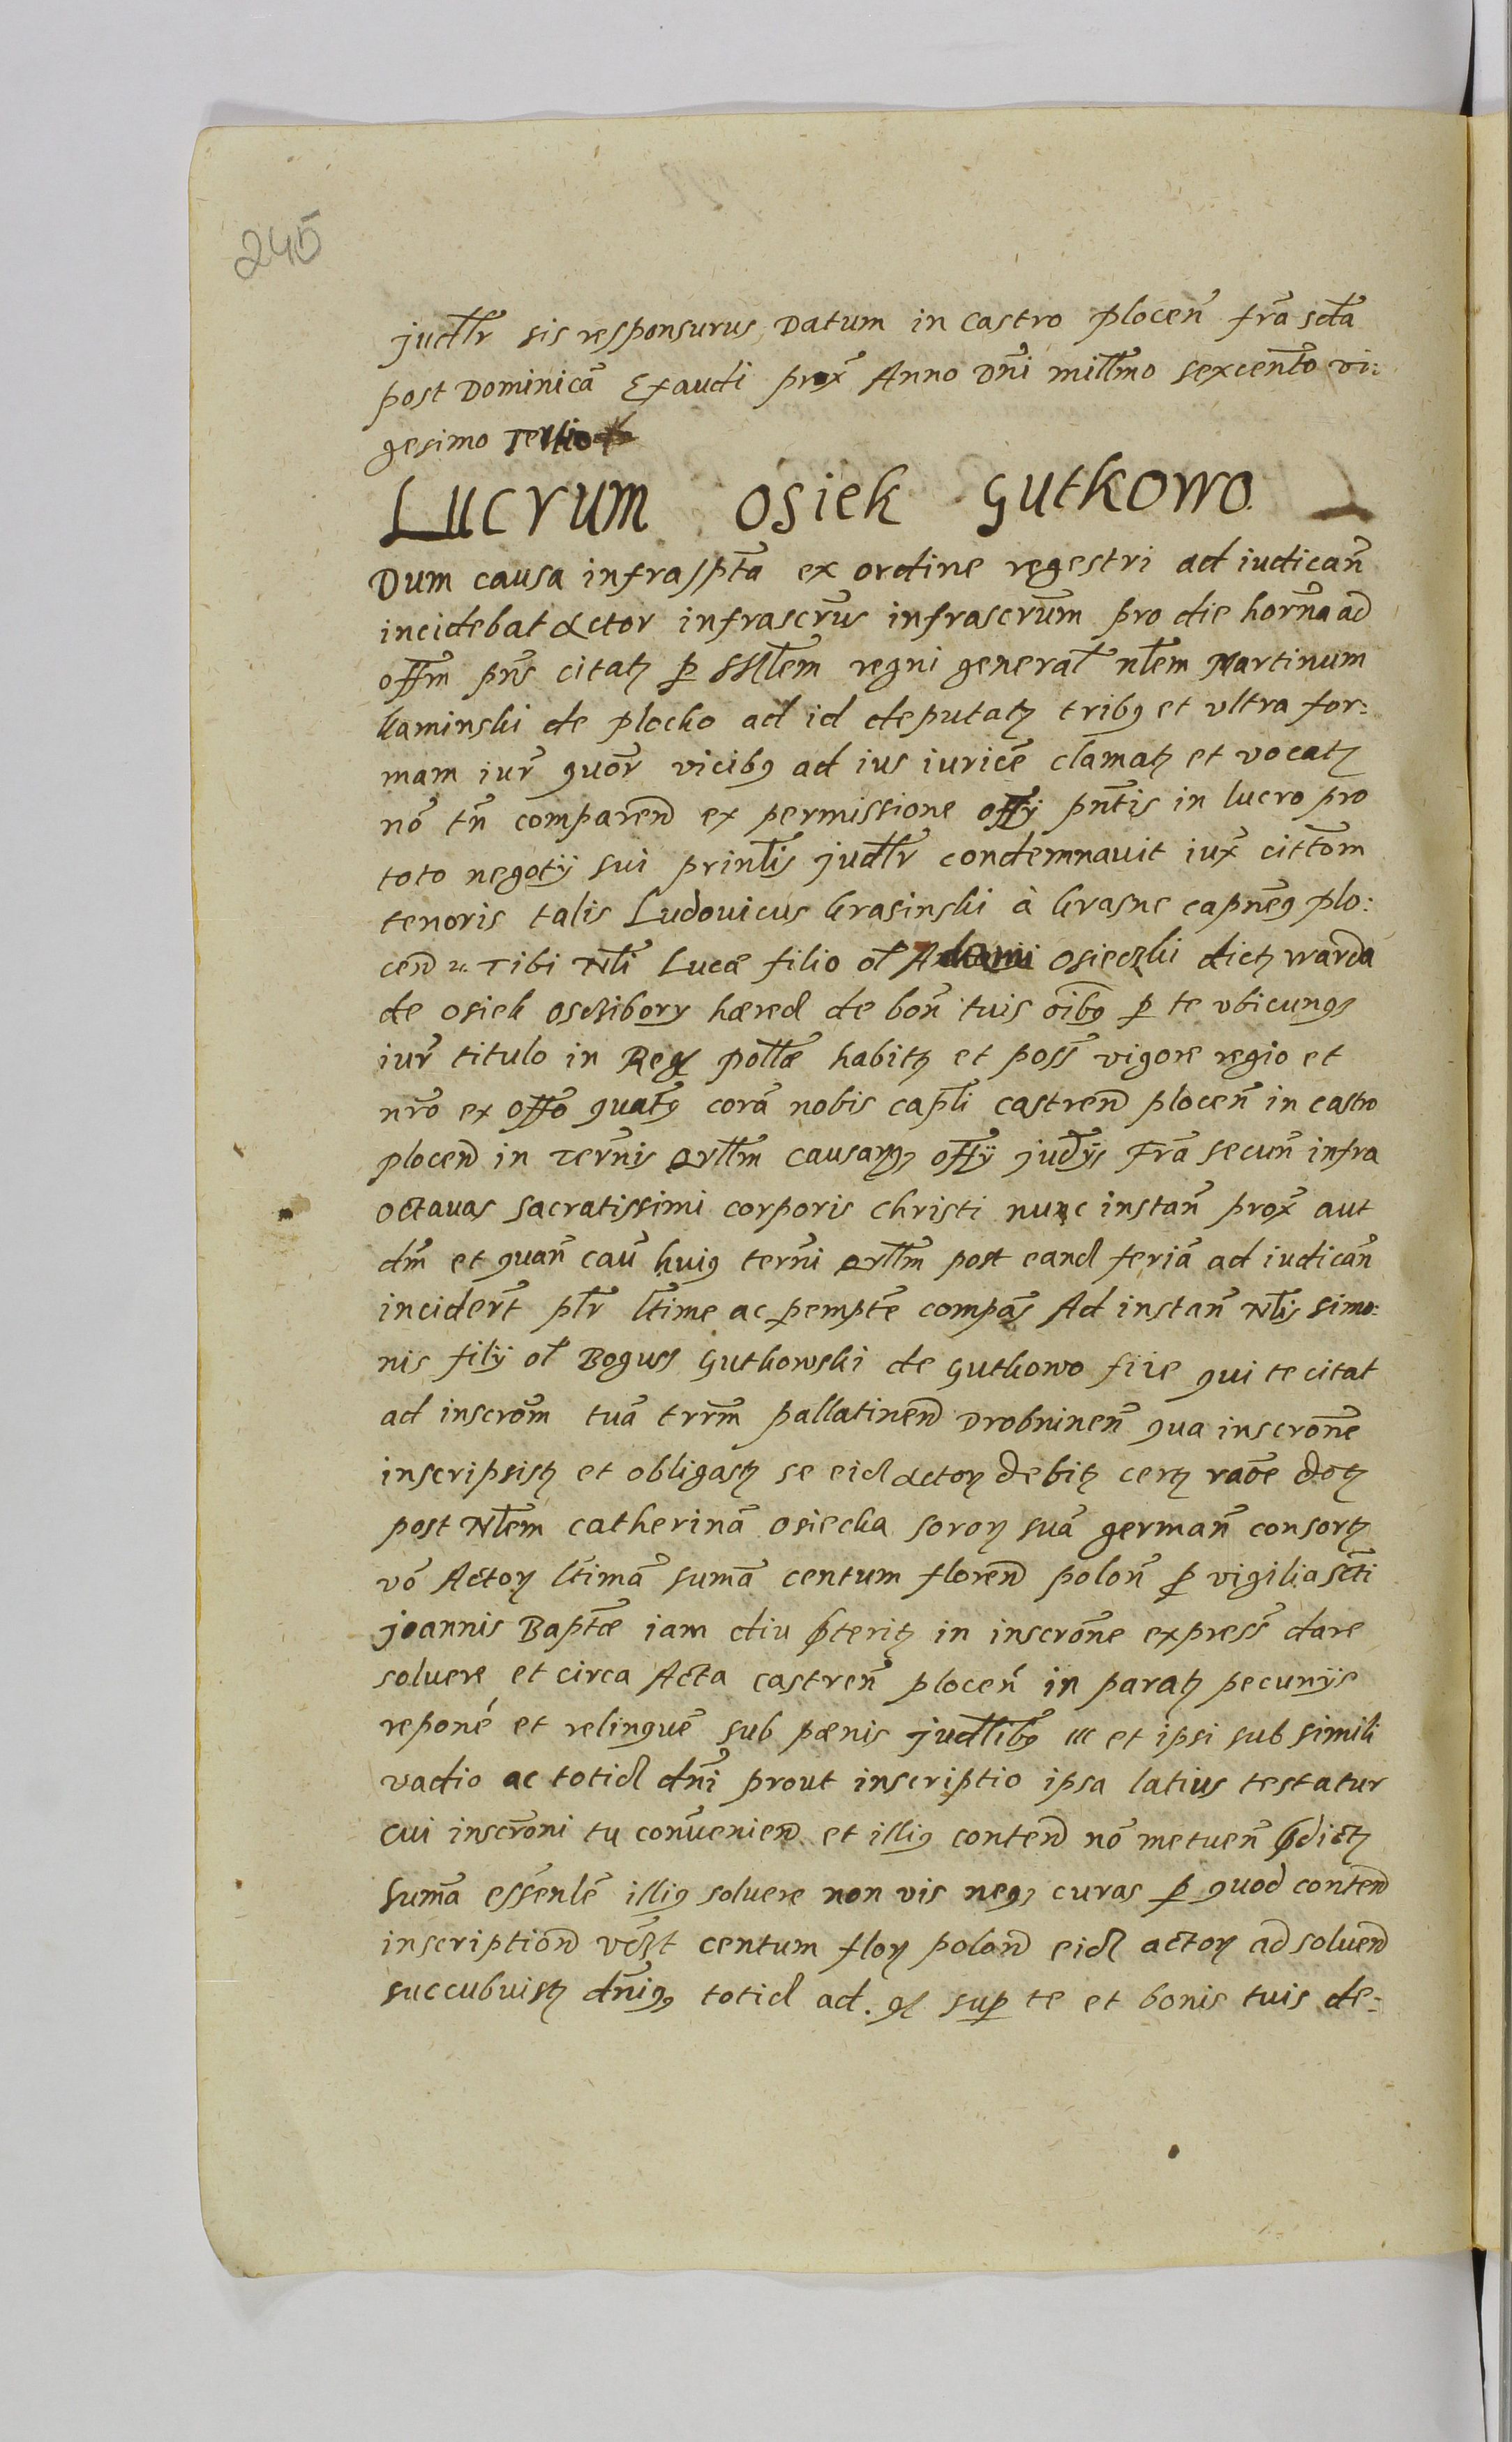 245
judllr sis responsurus, Datum in Castro plocen̄ fr̄a scd̄a
post Dominicā Exaudi prox̄ Anno Dn̄i millm̄o sexcento vi:
gesimo Tertio
Lucrum Osiek Gutkowo
Dum causa infrasp̄ta ex ordine regestri ad iudican̄
incidebat Actor infrascrūs infrascrūm pro die horn̄a ad
offm̄ pn̄s citatȝ ꝑ regni general̄ nlēm Martinum
Kaminski de plocko ad id deputatȝ tribꝫ et vltra for:
mam iur̄ quor̄ vicibꝫ ad ius iuricē clamatȝ et vocatȝ
nō tn̄ comparen̄ ex permissione offy pn̄tis in lucro pro
toto negotij sui prinlīs judllr condemnauit iux̄ cittōm
tenoris talis Ludouicus Krasinski à Krasne capn̄eꝫ plo:
cen̄ Tibi Nlī Lucæ filio ol̄ Adami Osieczki dictȝ warda
de Osiek Oscȝibory hæred de bon̄ tuis oībꝫ ꝑ te vbicunqꝫ
iur̄ titulo in Reg pollæ habitȝ et poss̄ vigore regio et
nr̄o ex offo quatꝫ corā nobis capl̄i castren̄ plocen̄ in castro
plocen̄ in Termīs qrllm̄ causarꝫ offȳ judȳs Fr̄a secun̄ infra
octauas sacratissimi corporis Christi nunc instan̄ prox̄ aut
dm̄ et quan̄ cau̅ huiꝫ termi qrllm̄ post eand feriā ad iudican̄
inciderīt plr̄ lt̄ime ac ꝑemptē compās Ad instan̄ Nlīs Simo:
nis filij ol̄ Boguss Gutkowski de Gutkowo qui te citat
ad inscrōm tuā trrm̄ pallatinen̄ Drobninen̄ qua inscrōne
inscripsistȝ et obligastȝ se eid Actorꝫ debitȝ certȝ raōe dotȝ
post Nlēm Catherinā Osiecka sororꝫ suā german̄ consortȝ
vō Actorꝫ lt̄imā sumā centum floren̄ polon̄ ꝑ vigilia sc̄ti
Joannis Bapt̄æ iam diu ꝓteritȝ in inscrōne express̄ dare
soluere et circa Acta castren̄ plocen̄ in paratȝ pecunijs
reponē et relinquē sub pœnis judllibꝫ et ipsi sub simili
vadio ac totid dn̄i prout inscriptio ipsa latius testatur
cui inscr̄oni tu conuenien̄ et illiꝫ conten̄ nō metuen̄ ꝓdictȝ
Sumā essenlē illiꝫ soluere non vis neqꝫ curas ꝑ quod conten̄
inscription̄ vcȝt centum florꝫ polon̄ eid actorꝫ ad soluen̄
succubuistȝ dn̄iqꝫ totid ad. sup̄ te et bonis tuis de: